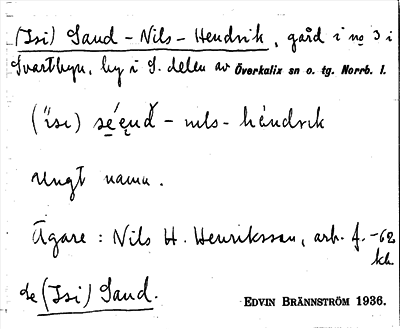 (Isi) Saud - Nils - Hendrik, gård i no 3 i
Svartbyn, by i S. delen av Överkalix sn o. tg. Norrb. l.
- nɪls -
ungt namn.
Ägare: Nils H. Henriksson, arb. f. -62
kk
se (Isi) Saud.
EDVIN BRÄNNSTRÖM 1936.